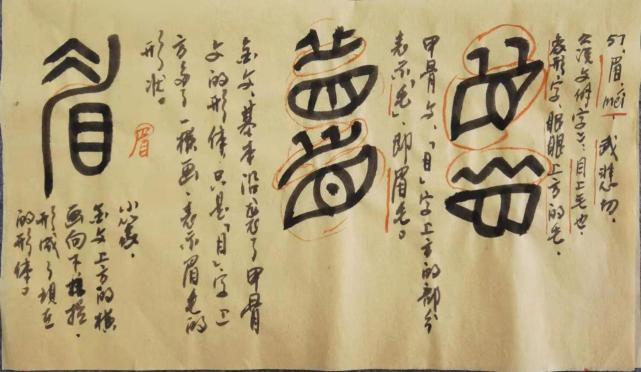 57、眉, mei- 武悲切.
说文解字:目上毛也.
象形字,眼睛上方的毛.
甲骨文,「目」字上方的部分
表示「毛」,即眉毛。
金文,基本沿袭了甲骨
文的形体,只是「目」字上
方多了一横画,表示眉毛的
形状。
眉
眉
小篆,
金文上方的横
画向下
形成了现在
的形体。